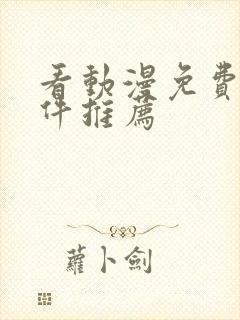 看動漫免費
件推薦
蘿卜劍